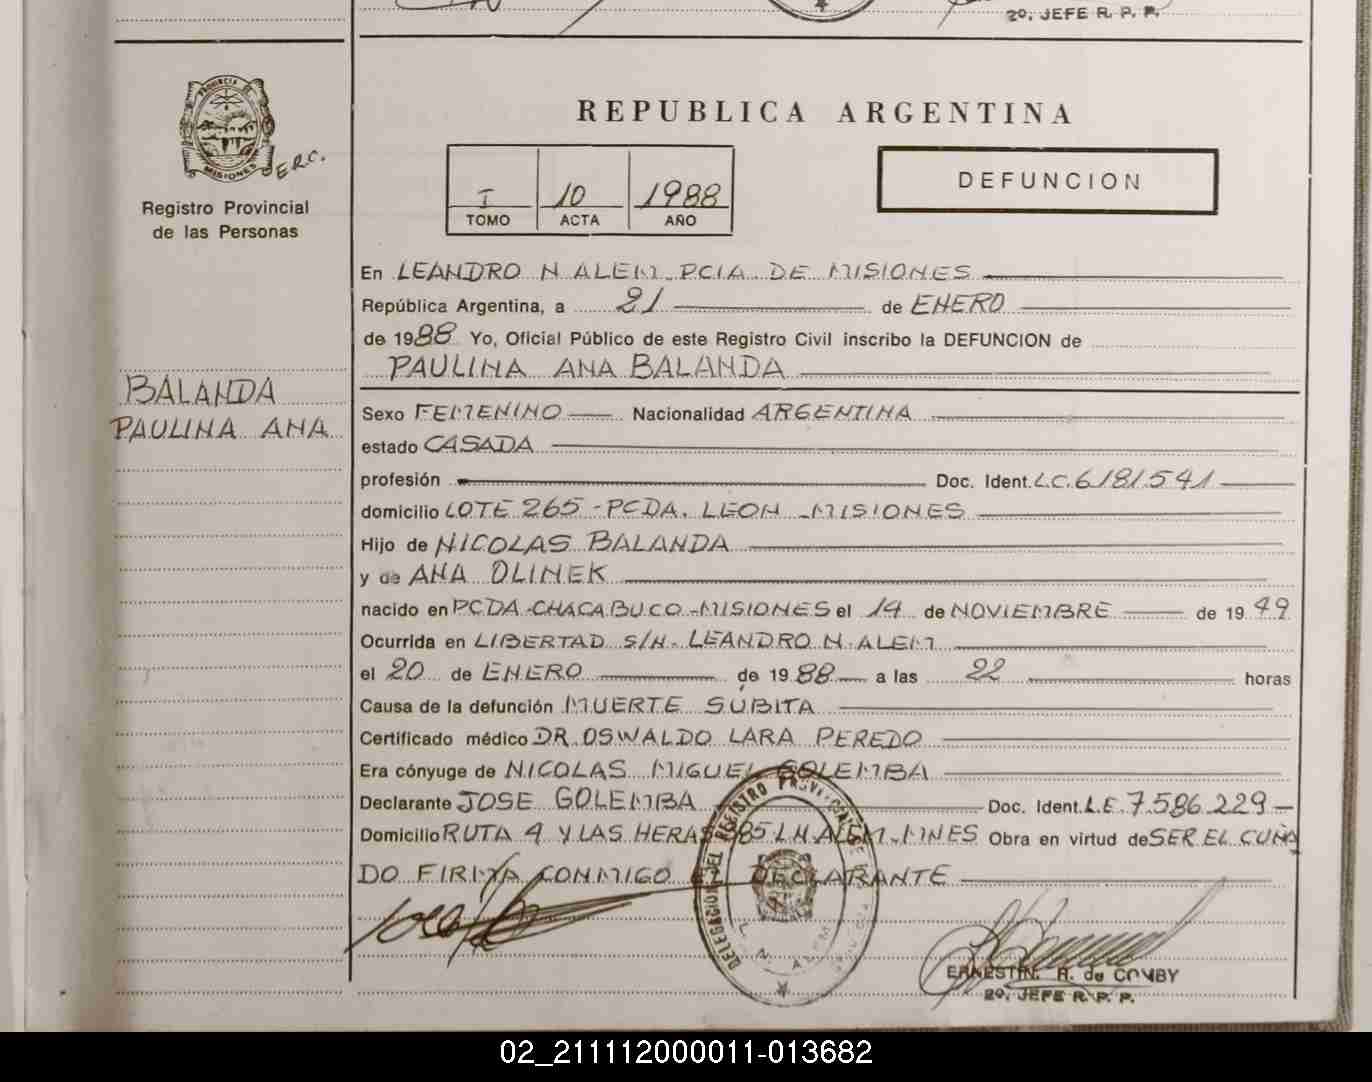 20. JEFE R. P. P.
PROVINCIA DE
MISIONES
E.R.C.
Registro Provincial
de las Personas
REPUBLICA ARGENTINA
I 10 1988
TOMO ACTA AÑO
DEFUNCION
En LEANDRO N ALEM PCIA DE MISIONES
República Argentina, a 21 de ENERO
de 1988 Yo, Oficial Público de este Registro Civil inscribo la DEFUNCION de
PAULINA ANA BALANDA
BALANDA
PAULINA ANA
Sexo FEMENINO Nacionalidad ARGENTINA
estado CASADA
profesión Doc. Ident. L.C. 6181541
domicilio LOTE 265 - PCDA. LEON - MISIONES
Hijo de NICOLAS BALANDA
y de ANA OLINEK
nacido en PCDA. CHACABUCO - MISIONES el 14 de NOVIEMBRE de 1949
Ocurrida en LIBERTAD S/N. LEANDRO N. ALEM
el 20 de ENERO de 1988 a las 22 horas
Causa de la defunción MUERTE SÚBITA
Certificado médico DR OSWALDO LARA PEREDO
Era cónyuge de NICOLAS MIGUEL GOLEMBA
Declarante JOSE GOLEMBA Doc. Ident. L.E. 7.586.229
Domicilio RUTA 4 Y LAS HERAS 385 L.N.ALEM - MNES Obra en virtud de SER EL CUÑA
DO FIRMA CONMIGO EL DECLARANTE
DELEGACION DEL REGISTRO PROVINCIAL DE
L. N. ALEM
ERNESTIN. R. de COMBY
20. JEFE R. P. P.
02_211112000011-013682